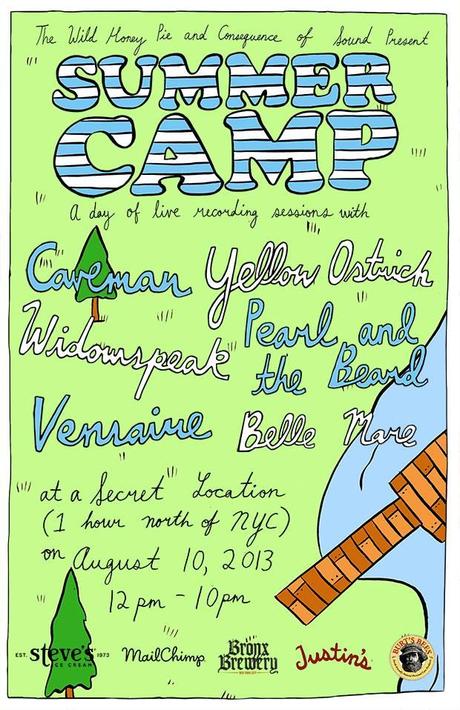 The Wild Honey Pie and Consequence of Sound Present
SUMMER
CAMP
A day of live recording sessions with
Caveman Yellow Ostrich
Widowspeak Pearl and
the Beard
Vensaire Belle Mare
at a Secret Location
(1 hour north of NYC)
on August 10, 2013
12 pm - 10pm
EST. steve's 1973
ICE CREAM
MailChimp
Bronx
Brewery
Justin's
BURT'S BEES